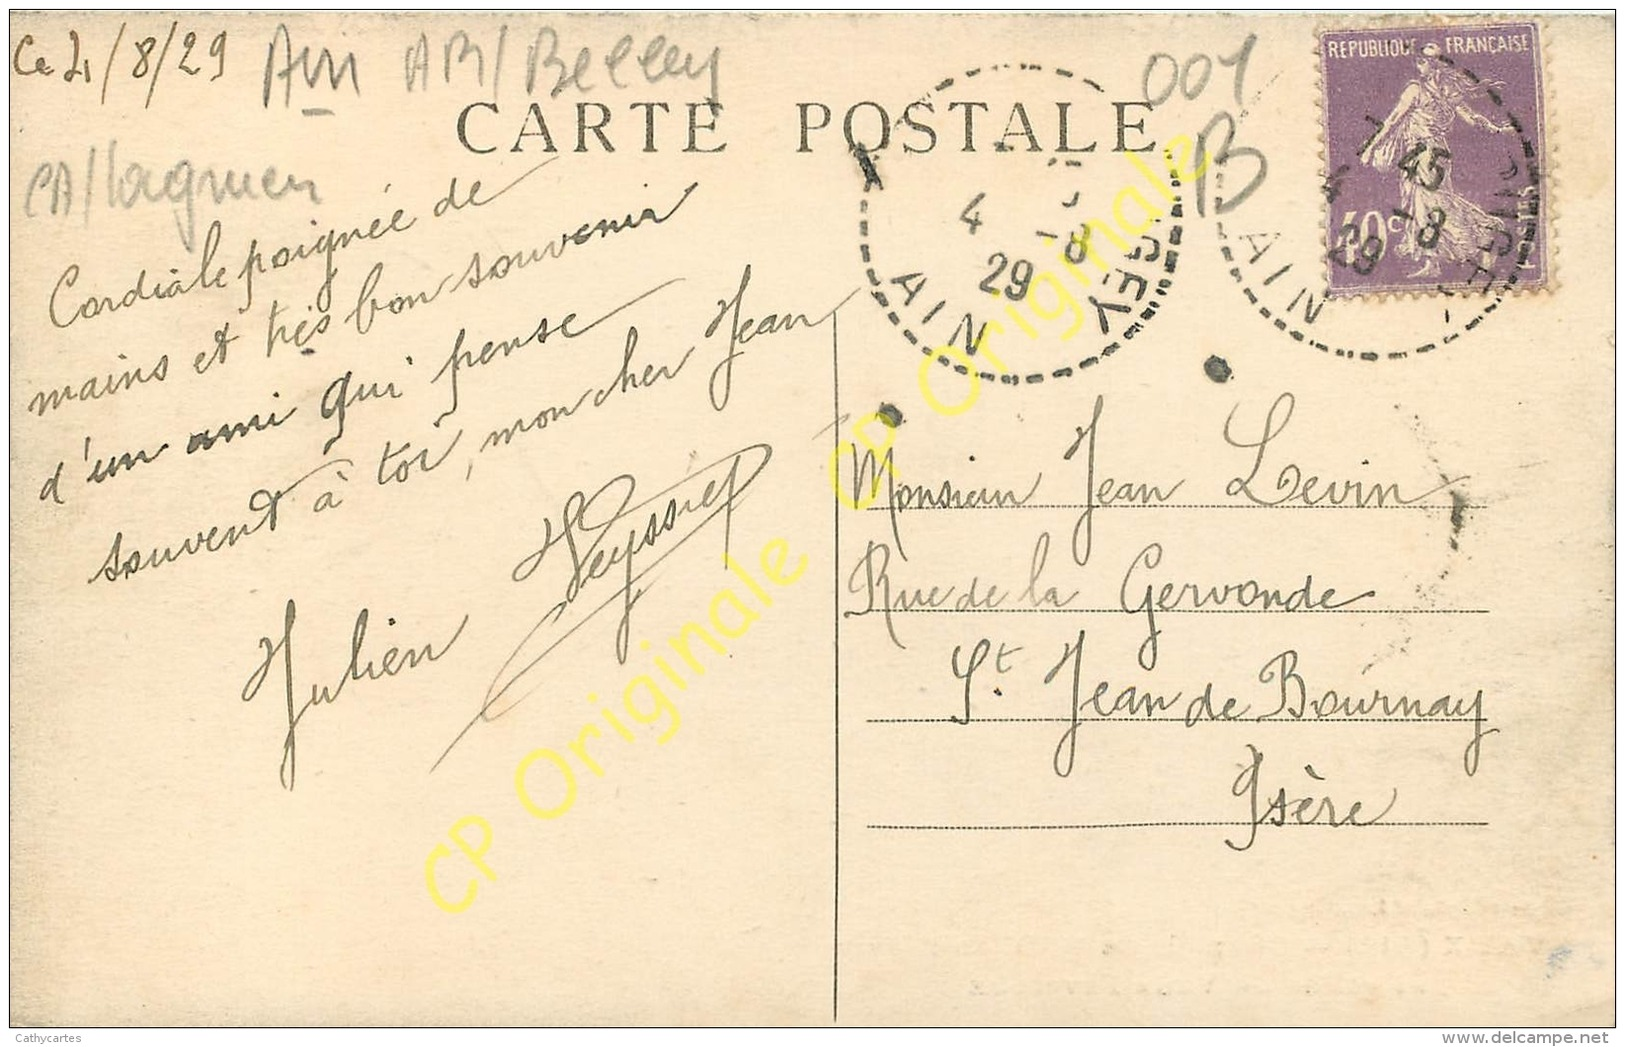 Ce 4/8/29
Ain AR/Belley
CA/Lagnieu
001
B
CARTE POSTALE
Cordiale poignée de
mains et très bon souvenir
d'un ami qui pense
souvent à toi, mon cher Jean
Julien Veyssier
REPUBLIQUE FRANÇAISE
40c
4 -8
29
AIN
GEY
7 45
4 -8
29
AIN
Monsieur Jean Levin
Rue de la Gervonde
St. Jean de Bournay
Isère
CP Originale
CP Originale
Cathycartes
www.delcampe.net